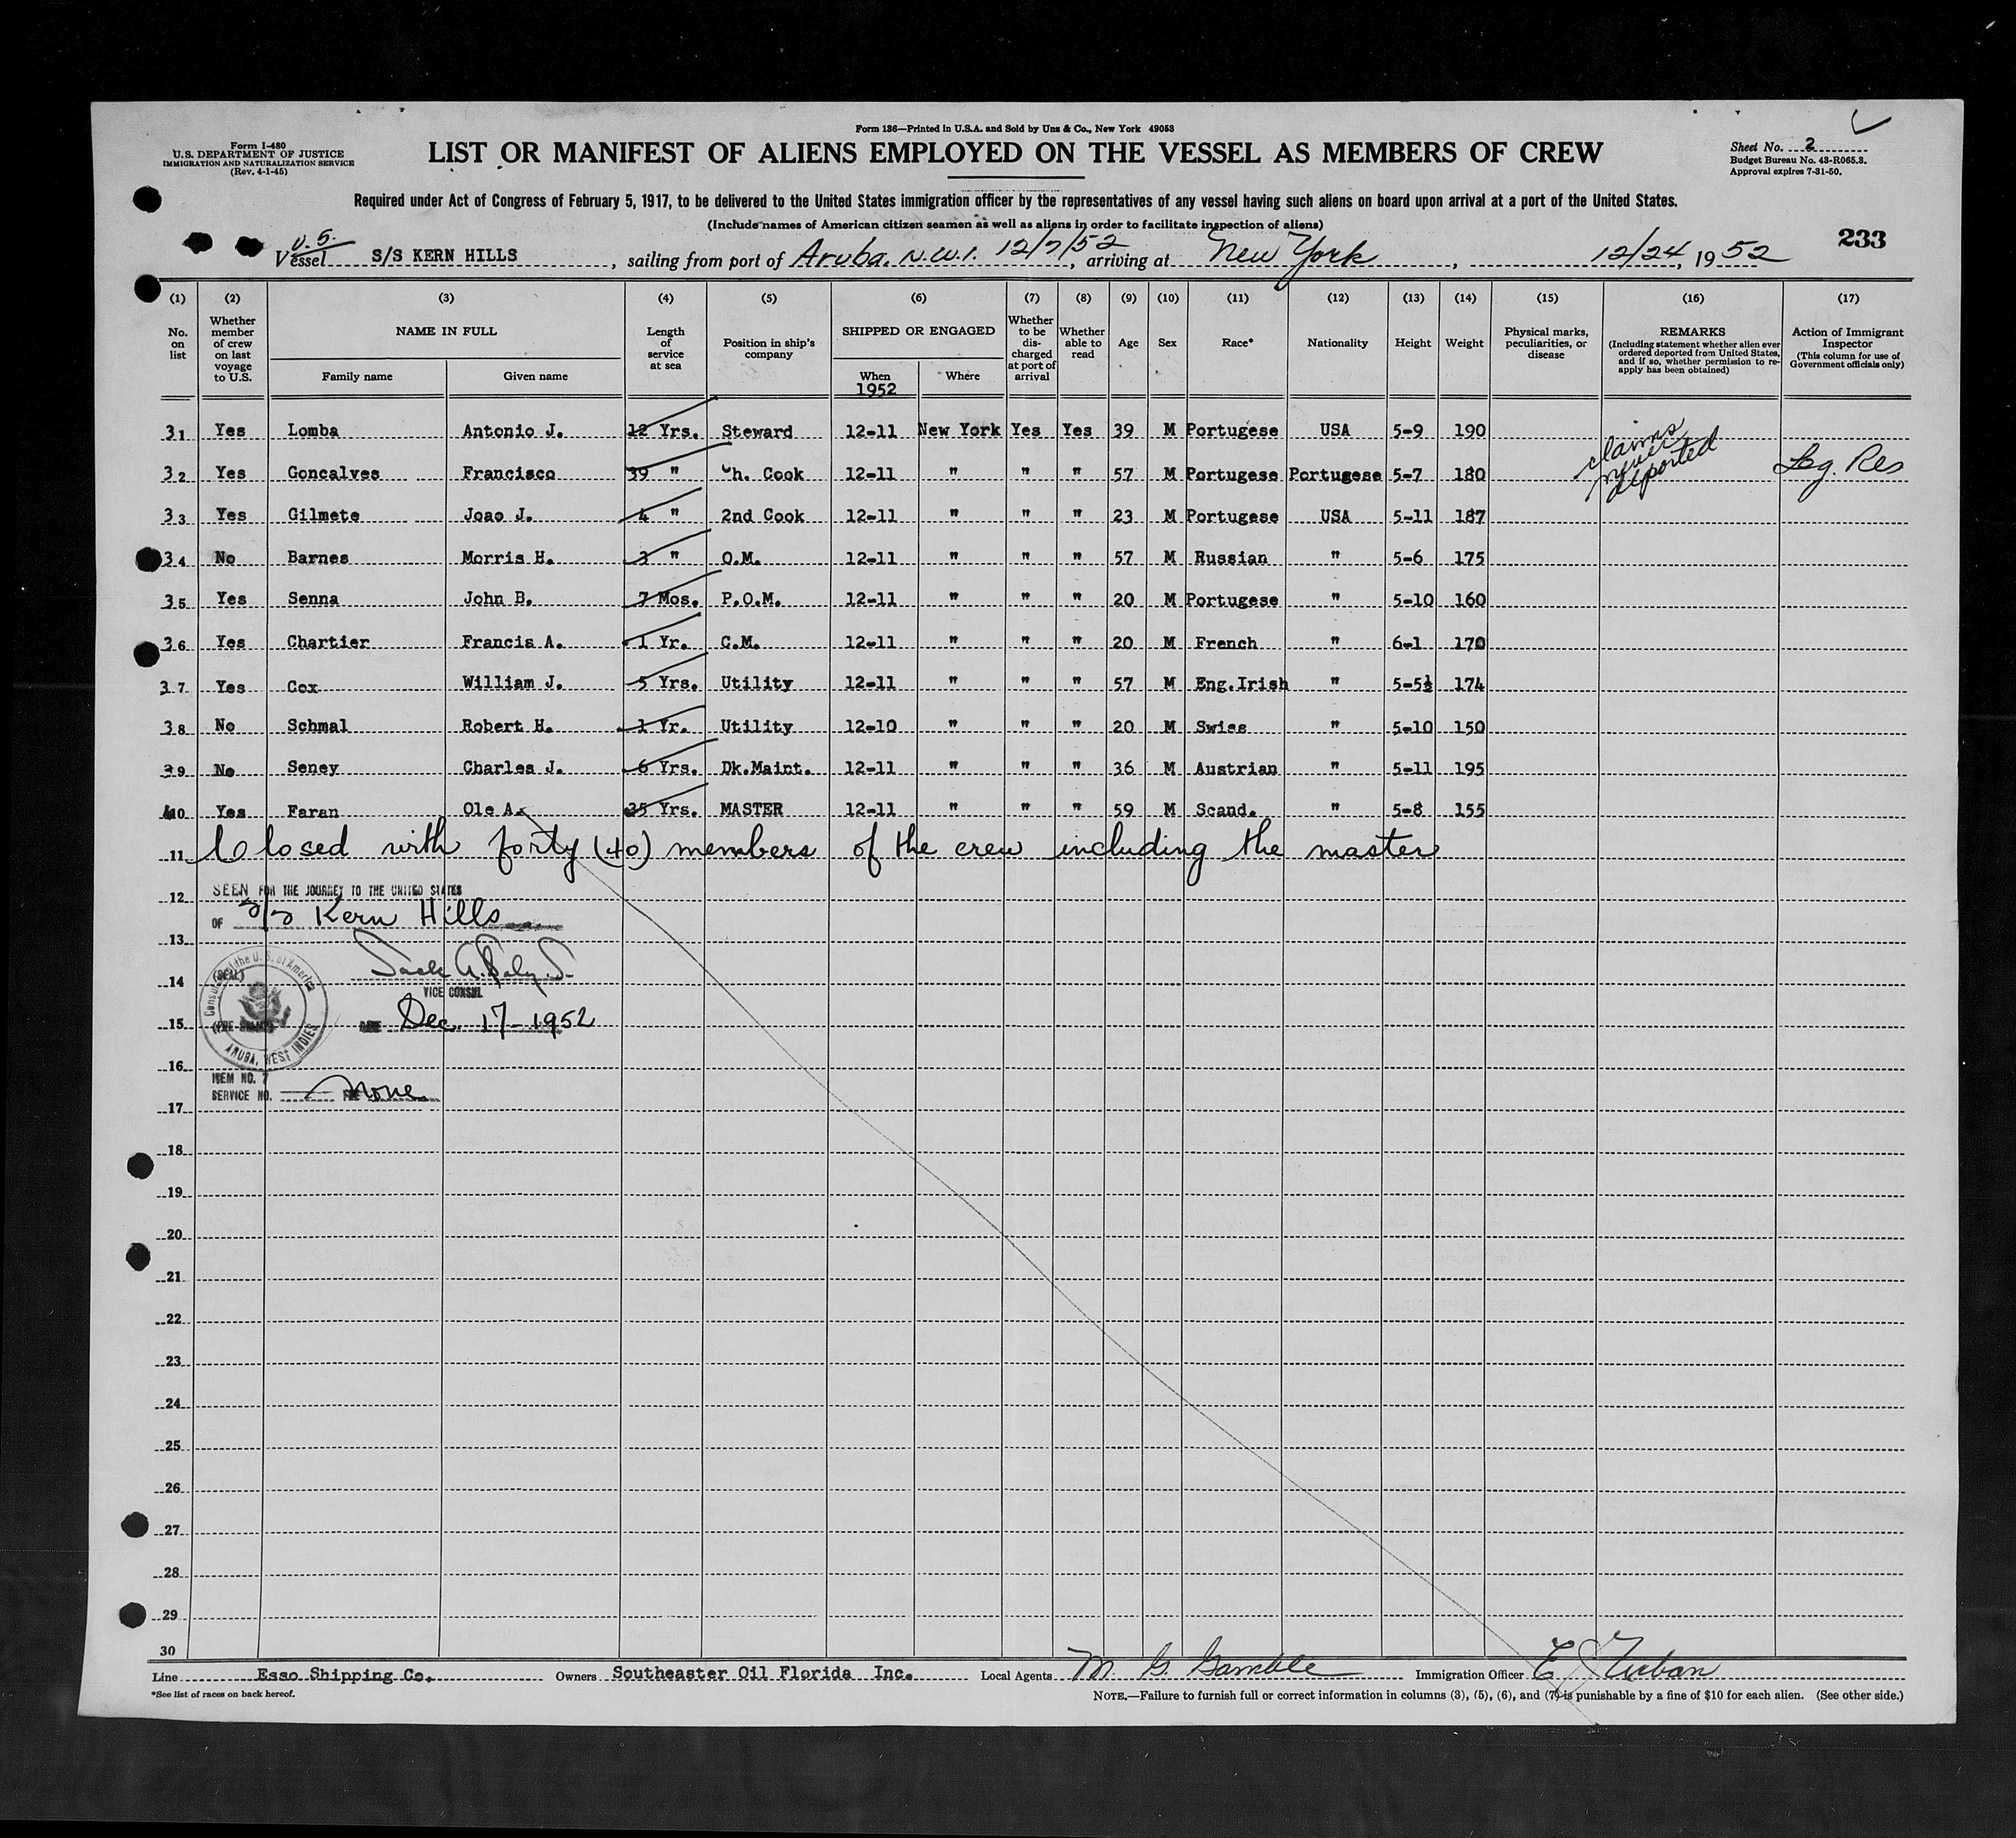 Form 136—Printed in U.S.A. and Sold by Unz & Co., New York 49053
Form I-480
U.S. DEPARTMENT OF JUSTICE
IMMIGRATION AND NATURALIZATION SERVICE
(Rev. 4-1-45)
LIST OR MANIFEST OF ALIENS EMPLOYED ON THE VESSEL AS MEMBERS OF CREW
Sheet No. 2
Budget Bureau No. 43-R065.3.
Approval expires 7-31-50.
Required under Act of Congress of February 5, 1917, to be delivered to the United States immigration officer by the representatives of any vessel having such aliens on board upon arrival at a port of the United States.
(Include names of American citizen seamen as well as aliens in order to facilitate inspection of aliens)
233
U.S.
Vessel S/S KERN HILLS, sailing from port of Aruba. N.W.I. 12/7/52, arriving at New York, 12/24, 1952
(1) (2) (3) (4) (5) (6) (7) (8) (9) (10) (11) (12) (13) (14) (15) (16) (17)
No. on list
Whether member of crew on last voyage to U.S.
NAME IN FULL
Family name Given name
Length of service at sea
Position in ship's company
SHIPPED OR ENGAGED
When Where
1952
Whether to be discharged at port of arrival
Whether able to read
Age
Sex
Race*
Nationality
Height
Weight
Physical marks, peculiarities, or disease
REMARKS
(Including statement whether alien ever ordered deported from United States, and if so, whether permission to reapply has been obtained)
Action of Immigrant Inspector
(This column for use of Government officials only)
31 Yes Lomba Antonio J. 12 Yrs. Steward 12-11 New York Yes Yes 39 M Portugese USA 5-9 190
32 Yes Goncalves Francisco 39 " Ch. Cook 12-11 " " " 57 M Portugese Portugese 5-7 180 claims never deported Leg. Res
33 Yes Gilmete Joao J. 4 " 2nd Cook 12-11 " " " 23 M Portugese USA 5-11 187
34 No Barnes Morris H. 3 " O.M. 12-11 " " " 57 M Russian " 5-6 175
35 Yes Senna John B. 7 Mos. P.O.M. 12-11 " " " 20 M Portugese " 5-10 160
36 Yes Chartier Francis A. 1 Yr. C.M. 12-11 " " " 20 M French " 6-1 170
37 Yes Cox William J. 5 Yrs. Utility 12-11 " " " 57 M Eng.Irish " 5-5½ 174
38 No Schmal Robert H. 1 Yr. Utility 12-10 " " " 20 M Swiss " 5-10 150
39 No Seney Charles J. 6 Yrs. Dk.Maint. 12-11 " " " 36 M Austrian " 5-11 195
40 Yes Faran Ole A. 35 Yrs. MASTER 12-11 " " " 59 M Scand. " 5-8 155
11 Closed with forty (40) members of the crew including the master
12 SEEN FOR THE JOURNEY TO THE UNITED STATES
OF S/S Kern Hills
13
14 (SEAL) Consulate of the U.S. of America ARUBA, WEST INDIES
VICE CONSUL
15 DATE Dec. 17-1952
16
ITEM NO. 7
SERVICE NO. FEE None
17
18
19
20
21
22
23
24
25
26
27
28
29
30
Line Esso Shipping Co. Owners Southeaster Oil Florida Inc. Local Agents M. G. Gamble Immigration Officer E J Urban
*See list of races on back hereof.
NOTE.—Failure to furnish full or correct information in columns (3), (5), (6), and (7) is punishable by a fine of $10 for each alien. (See other side.)